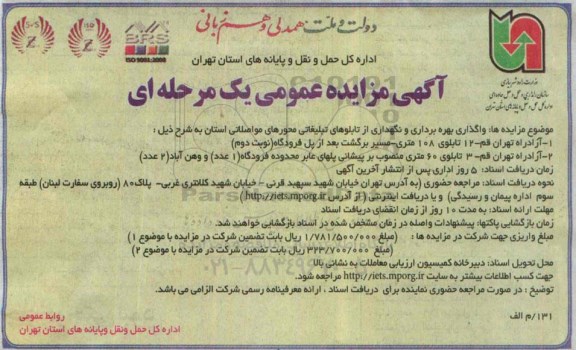 دولت و ملت، همدلی و هم‌زبانی
BRS
ISO 9001:2008
ISO
اداره کل حمل و نقل و پایانه های استان تهران
آگهی مزایده عمومی یک مرحله ای
موضوع مزایده ها: واگذاری بهره برداری و نگهداری از تابلوهای تبلیغاتی محورهای مواصلاتی استان به شرح ذیل :
۱-آزادراه تهران قم-۱۲ تابلوی ۱۰۸ متری-مسیر برگشت بعد از پل فرودگاه(نوبت دوم)
۲-آزادراه تهران قم- ۳ تابلوی ۶۰ متری منصوب بر پیشانی پلهای عابر محدوده فرودگاه(۱ عدد) و وهن آباد(۲ عدد)
زمان دریافت اسناد: ۵ روز اداری پس از انتشار آخرین آگهی
نحوه دریافت اسناد: مراجعه حضوری (به آدرس تهران خیابان شهید سپهبد قرنی - خیابان شهید کلانتری غربی- پلاک۸۰ (روبروی سفارت لبنان) طبقه
سوم اداره پیمان و رسیدگی) و یا دریافت اینترنتی (از آدرس http://iets.mporg.ir)
مهلت ارائه اسناد: به مدت ۱۰ روز از زمان انقضای دریافت اسناد
زمان بازگشایی پاکتها: پیشنهادات واصله در زمان مشخص شده در اسناد بازگشایی خواهند شد.
مبلغ واریزی جهت شرکت در مزایده ها : (مبلغ ۱/۷۸۱/۵۰۰/۰۰۰ ریال بابت تضمین شرکت در مزایده با موضوع ۱)
(مبلغ ۳۲۳/۷۰۰/۰۰۰ ریال بابت تضمین شرکت در مزایده با موضوع ۲)
محل تحویل اسناد: دبیرخانه کمیسیون ارزیابی معاملات به نشانی بالا
جهت کسب اطلاعات بیشتر به سایت http://iets.mporg.ir مراجعه شود.
توضیح : در صورت مراجعه حضوری نماینده برای دریافت اسناد ، ارائه معرفینامه رسمی شرکت الزامی می باشد.
روابط عمومی
اداره کل حمل ونقل وپایانه های استان تهران
۱۳۱/م الف